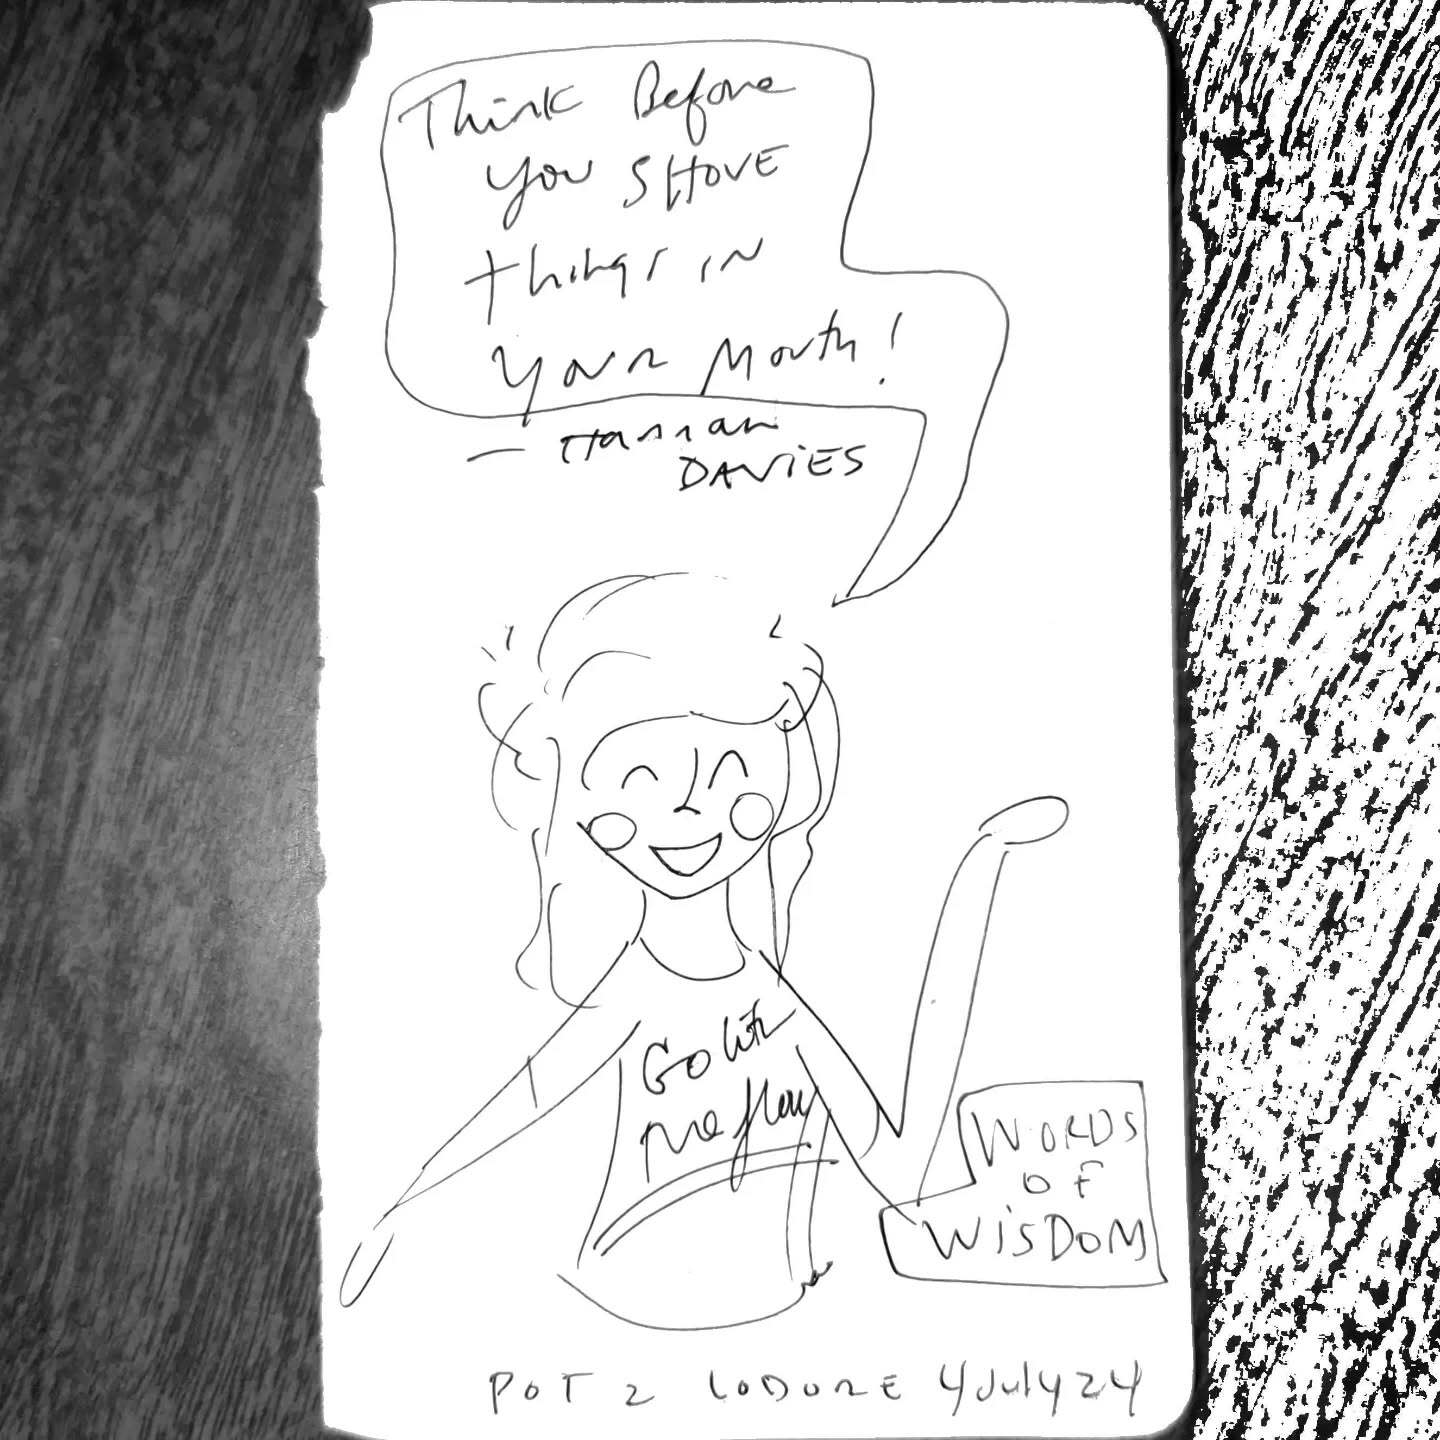 Think Before
you SHOVE
things in
your Mouth!
— Hannah
DAVIES
Go With
the flow
WORDS
OF
WiSDOM
POT 2 LODORE 4 July 24